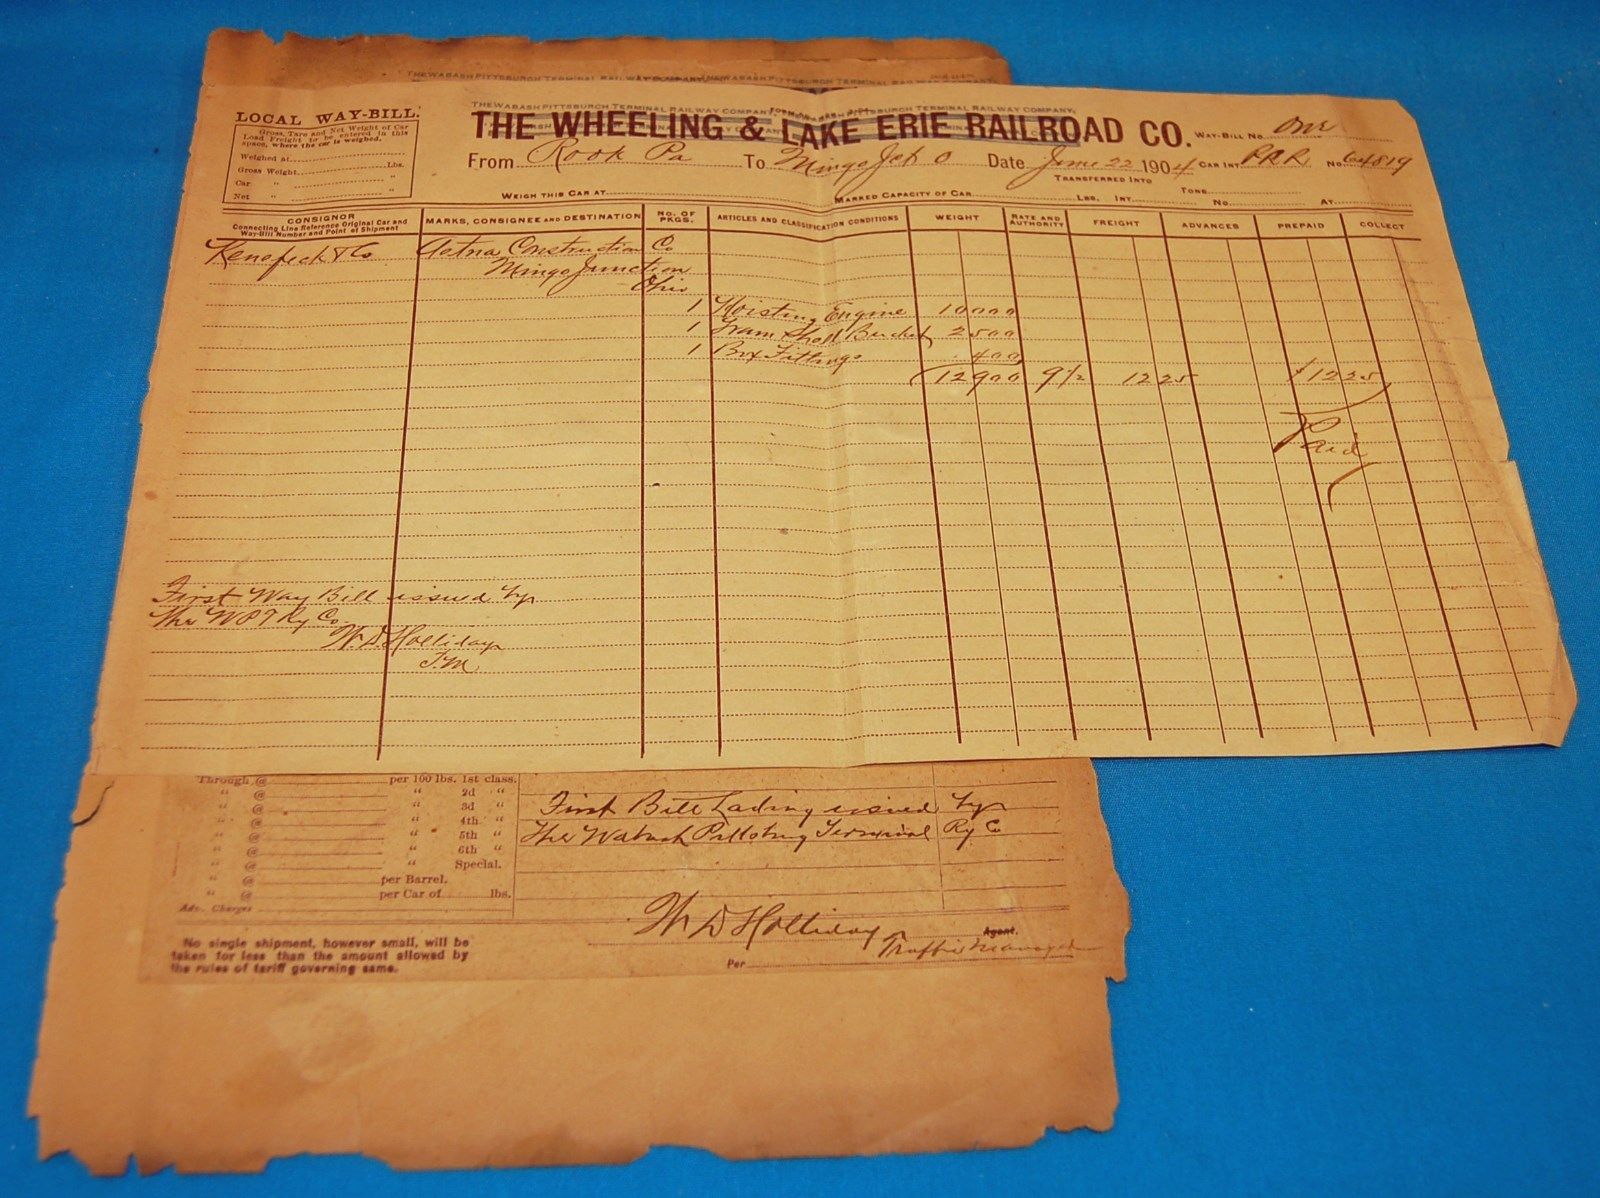 THE WABASH PITTSBURGH TERMINAL RAILWAY COMPANY,
LOCAL WAY-BILL.
Gross, Tare and Net Weight of Car
Load Freight to be entered in this
space, where the car is weighed.
Weighed at
Lbs.
Gross Weight "
Car " "
Net " "
THE WABASH PITTSBURGH TERMINAL RAILWAY COMPANY,
THE WHEELING & LAKE ERIE RAILROAD CO.
WAY-BILL No. One
From Rook Pa To Mingo Jct O Date June 22 1904 CAR INT. P.R.R. No. 64819
WEIGH THIS CAR AT MARKED CAPACITY OF CAR LBS. INT. TRANSFERRED INTO No. TONS AT
CONSIGNOR
Connecting Line Reference Original Car and
Way-Bill Number and Point of Shipment
MARKS, CONSIGNEE AND DESTINATION
No. OF PKGS.
ARTICLES AND CLASSIFICATION CONDITIONS
WEIGHT
RATE AND AUTHORITY
FREIGHT
ADVANCES
PREPAID
COLLECT
Kenefick & Co Aetna Construction Co
Mingo Junction
Ohio
1 Hoisting Engine 10000
1 Bucket 2500
1 Box Fittings 400
12900 9½ 12 25 $12 25
Paid
First Way Bill issued by
The W P T Ry Co.
W. D. Holliday
T.M.
Through @ per 100 lbs. 1st class.
" @ " 2d "
" @ " 3d "
" @ " 4th "
" @ " 5th "
" @ " 6th "
" @ " Special.
" @ per Barrel.
" @ per Car of lbs.
Adv. Charges
First Bill Lading issued by
The Wabash Pittsburg Terminal Ry Co
W D Holliday
Agent.
Traffic Manager
Per
No single shipment, however small, will be
taken for less than the amount allowed by
the rules of tariff governing same.